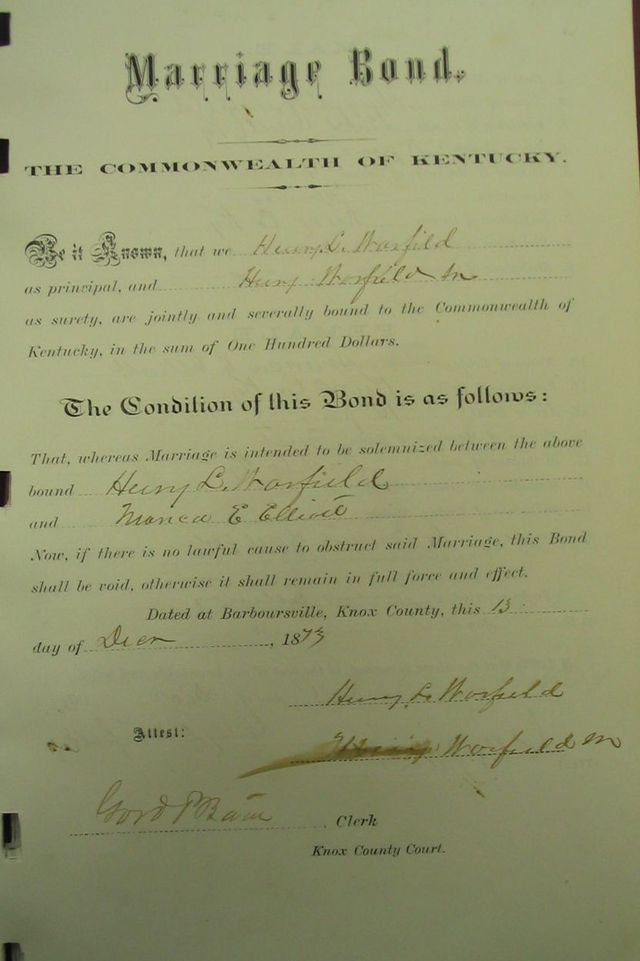 Marriage Bond.
THE COMMONWEALTH OF KENTUCKY.
Be it Known, that we Henry L. Warfield
as principal, and Henry Warfield Sr
as surety, are jointly and severally bound to the Commonwealth of
Kentucky, in the sum of One Hundred Dollars.
The Condition of this Bond is as follows:
That, whereas Marriage is intended to be solemnized between the above
bound Henry L. Warfield
and E Elliott
Now, if there is no lawful cause to obstruct said Marriage, this Bond
shall be void, otherwise it shall remain in full force and effect.
Dated at Barboursville, Knox County, this 13
day of Decr, 1873
Henry L. Warfield
Attest:
Henry Warfield Sr
Clerk
Knox County Court.